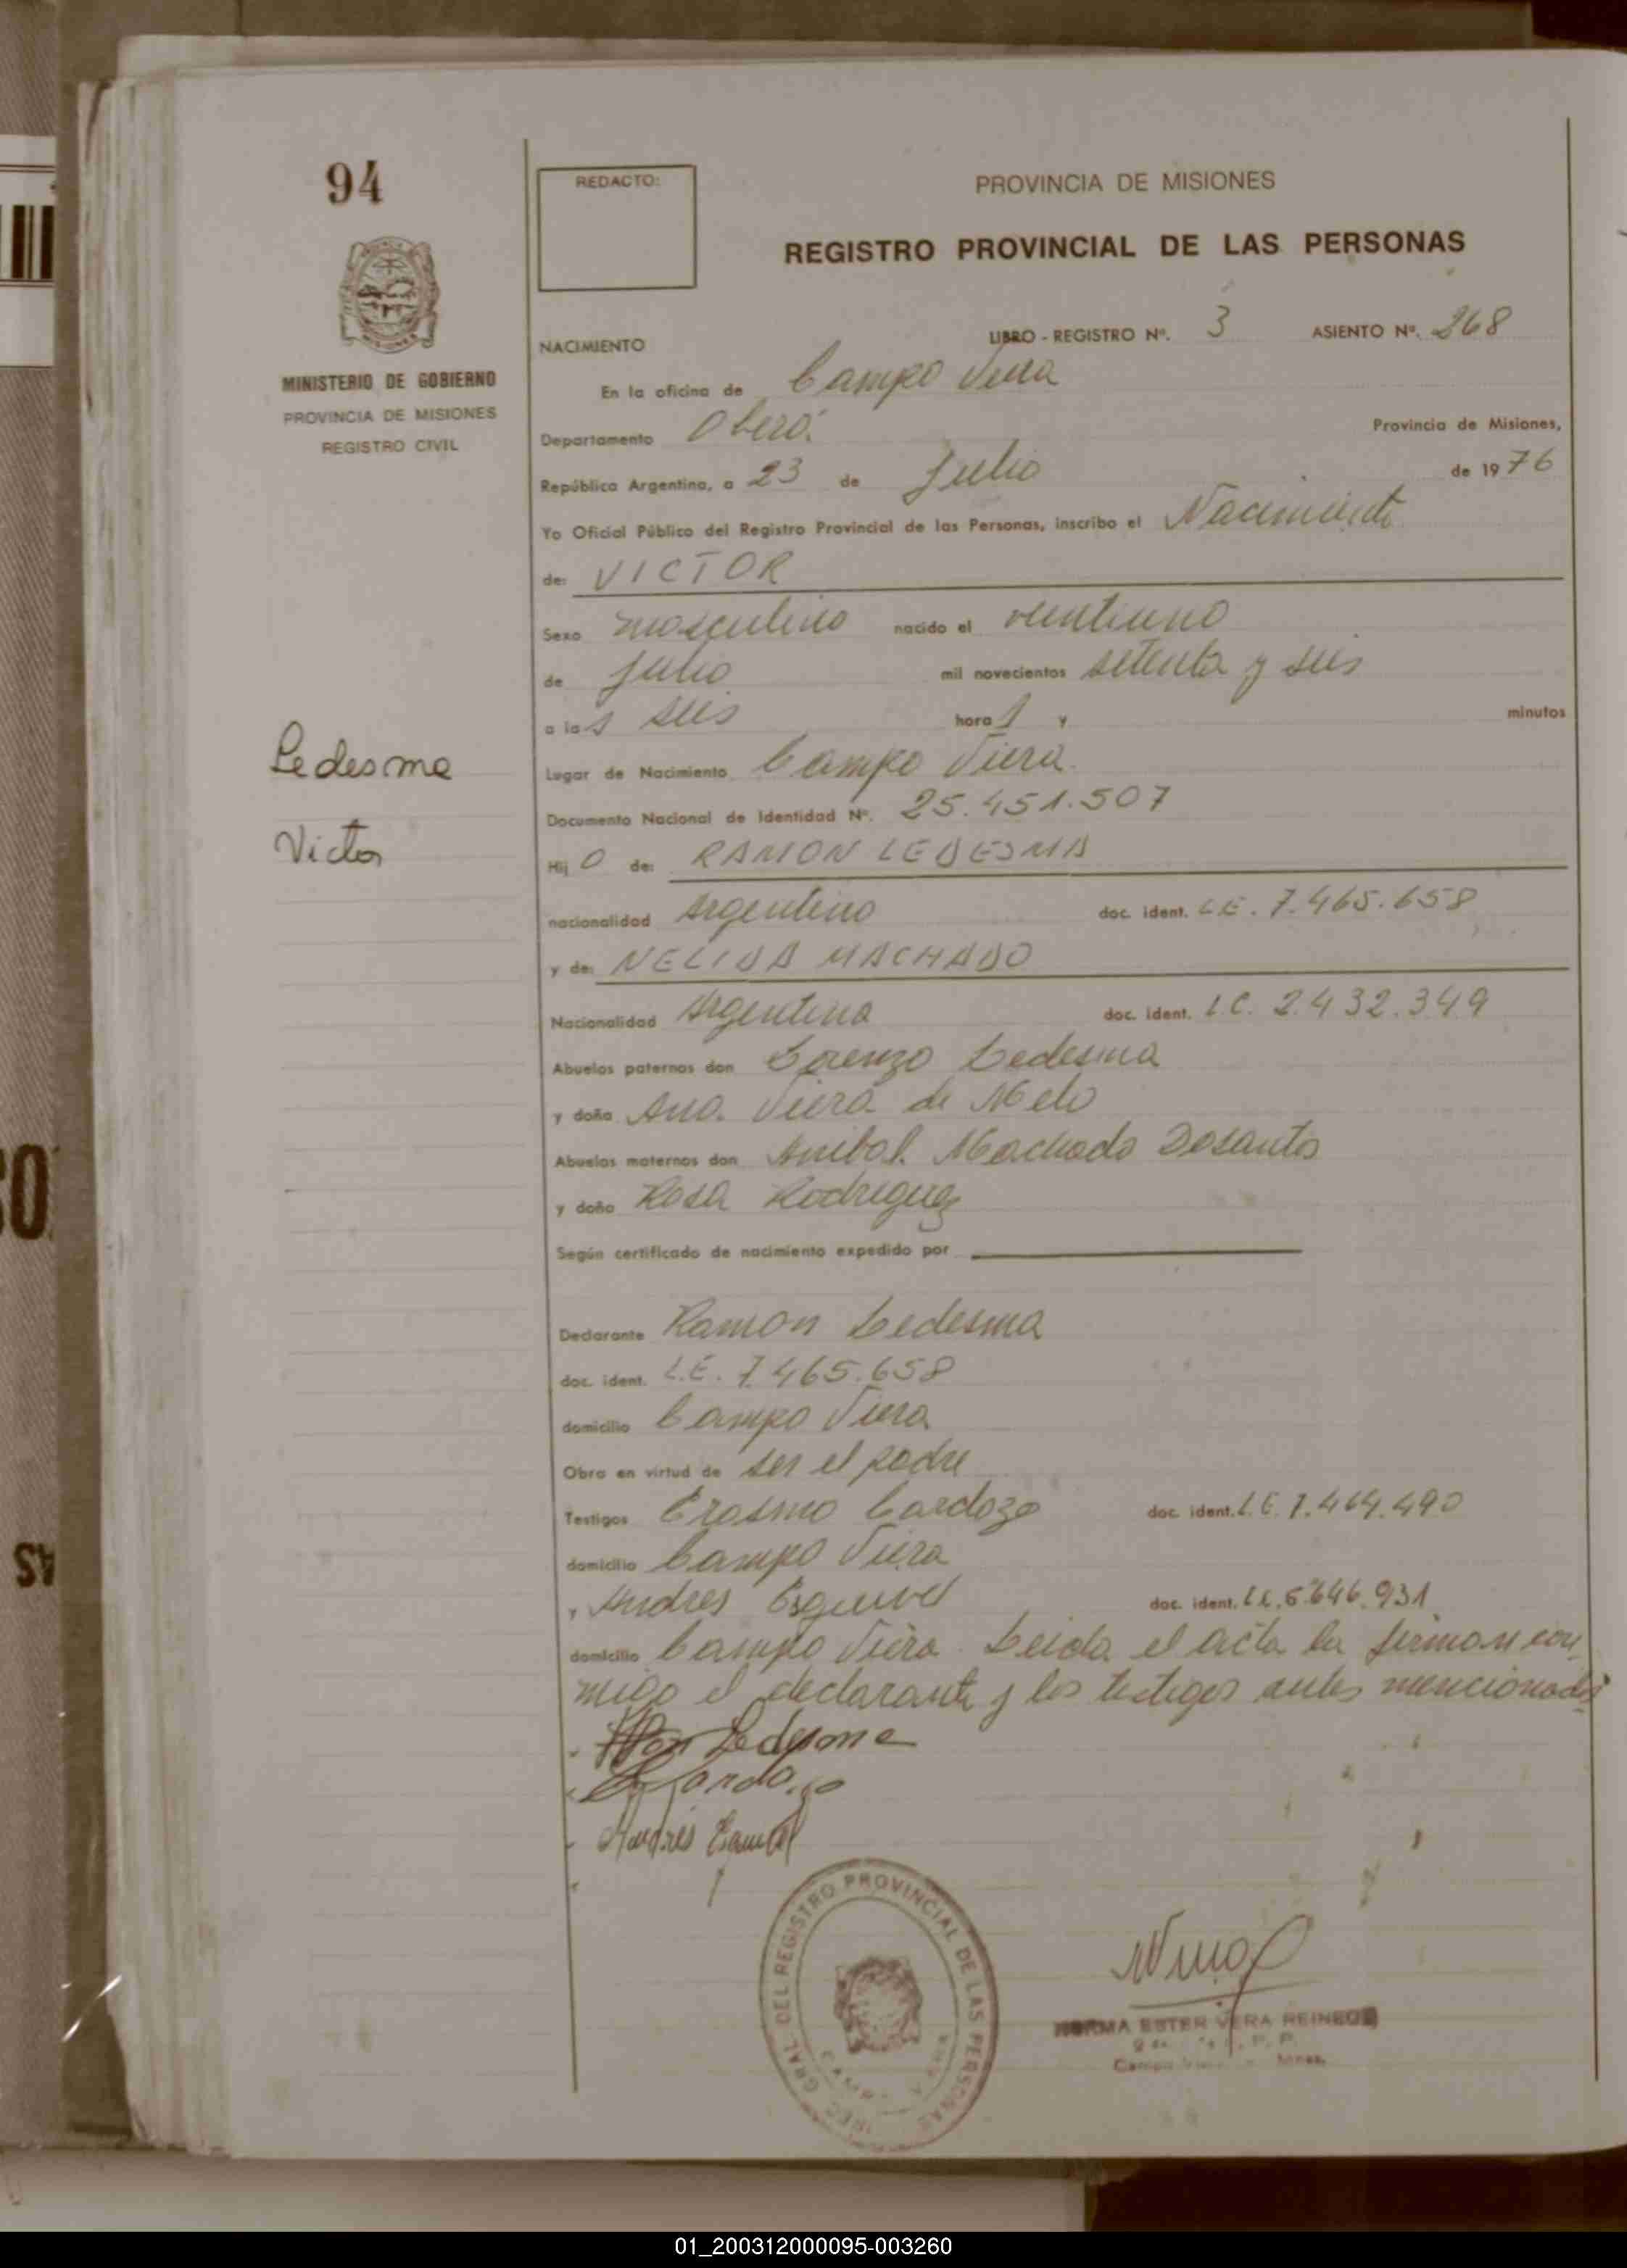 94
REDACTO:
PROVINCIA DE MISIONES
REGISTRO PROVINCIAL DE LAS PERSONAS
MINISTERIO DE GOBIERNO
PROVINCIA DE MISIONES
REGISTRO CIVIL
LIBRO - REGISTRO Nº. 3 ASIENTO Nº. 268
NACIMIENTO
En la oficina de Campo Viera
Departamento Oberá. Provincia de Misiones,
República Argentina, a 23 de Julio de 1976
Yo Oficial Público del Registro Provincial de las Personas, inscribo el Nacimiento
de: VICTOR
Sexo masculino nacido el veintiuno
de Julio mil novecientos setenta y seis
a las seis hora s y minutos
Ledesma
Victor
Lugar de Nacimiento Campo Viera.
Documento Nacional de Identidad Nº. 25.451.507
Hij o de: RAMON LEDESMA
nacionalidad Argentino doc. ident. L.E. 7.465.658
y de: NELIDA MACHADO
Nacionalidad Argentina doc. ident. L.C. 2.432.349
Abuelos paternos don Lorenzo Ledesma
y doña Ana Viera de Melo
Abuelos maternos don Anibal Machado Dosantos
y doña Rosa Rodriguez
Según certificado de nacimiento expedido por
Declarante Ramon Ledesma
doc. ident. L.E. 7.465.658
domicilio Campo Viera
Obra en virtud de ser el padre
Testigos Erasmo Cardozo doc. ident. L.E. 7.464.490
domicilio Campo Viera
y Andres Esquivel doc. ident. 5.646.931
domicilio Campo Viera. Leida el acta la firman con
migo el declarante y los testigos antes mencionados
Ledesma
Cardozo
Andrés Esquivel
GRAL DEL REGISTRO PROVINCIAL DE LAS PERSONAS
NORMA ESTER VERA REINEOS
01_200312000095-003260